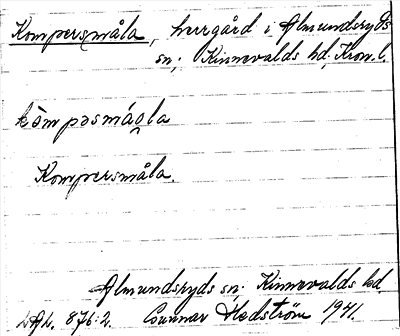 Kompersmåla, herrgård i Almundsryds
sn, Kinnevalds hd, Kron. l.
kòmpəsmáola
Kompersmåla.
Almundsryds sn, Kinnevalds hd.
876:2. Gunnar Hedström 1941.